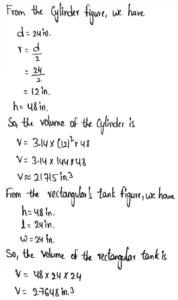 From the Cylinder figure, we have
d = 24in.
r = d/2
= 24/2
= 12 in.
h = 48 in.
So, the volume of the Cylinder is
V = 3.14 x (12)² x 48
V = 3.14 x 144 x 48
V ≈ 21715 in³
From the rectangular's tank figure, we have
h = 48 in.
l = 24in.
w = 24 in.
So, the volume of the rectangular tank is
V = 48 x 24 x 24
V = 27648 in.³